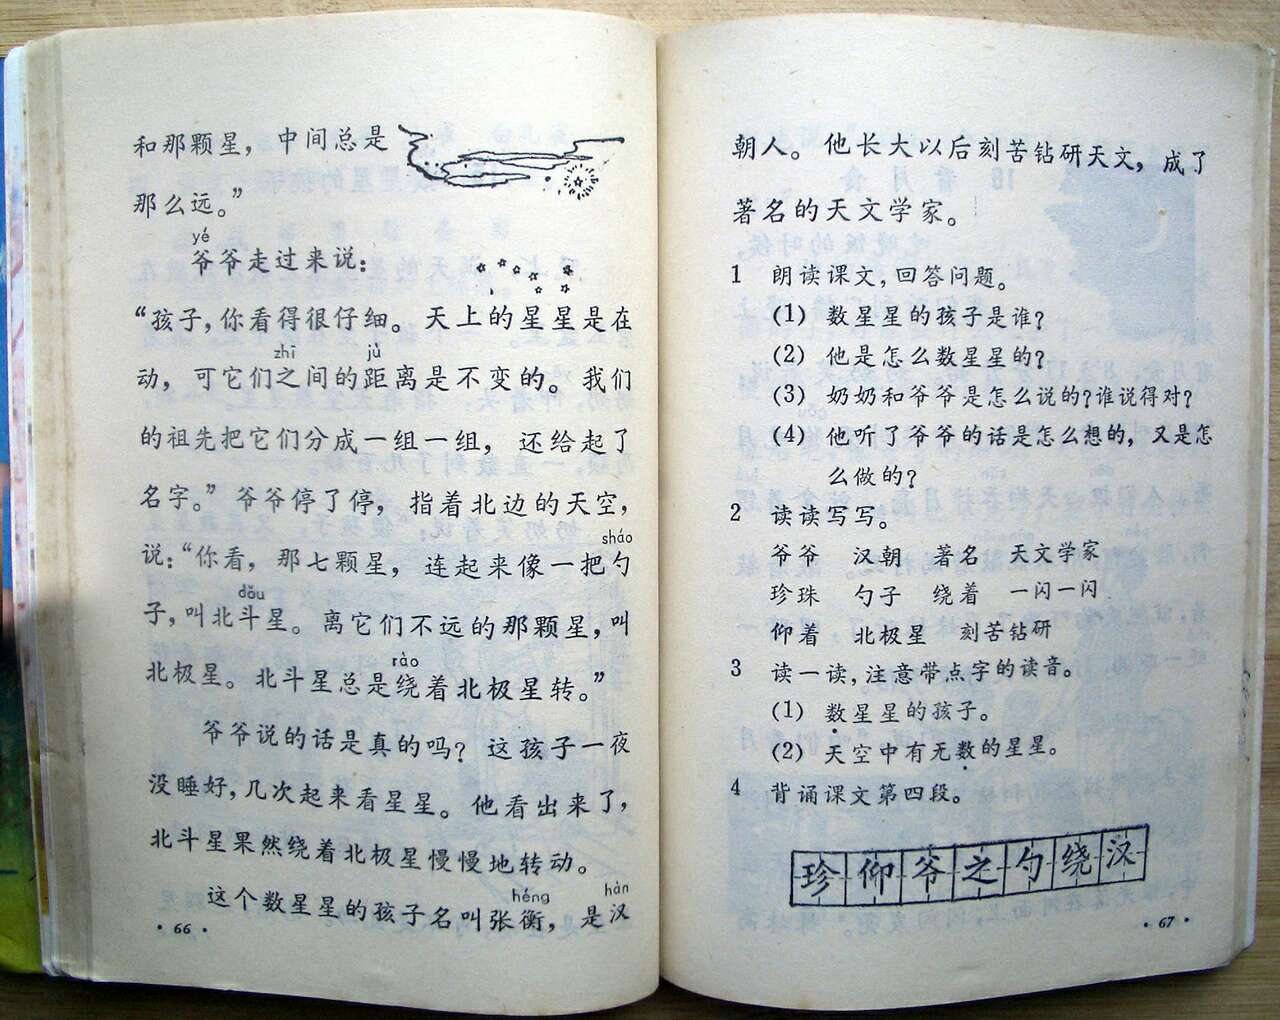 和那颗星，中间总是
那么远。”
yé
爷爷走过来说：
“孩子，你看得很仔细。天上的星星是在
zhī jù
动，可它们之间的距离是不变的。我们
的祖先把它们分成一组一组，还给起了
名字。”爷爷停了停，指着北边的天空，
sháo
说：“你看，那七颗星，连起来像一把勺
dǒu
子，叫北斗星。离它们不远的那颗星，叫
rào
北极星。北斗星总是绕着北极星转。”
爷爷说的话是真的吗？这孩子一夜
没睡好，几次起来看星星。他看出来了，
北斗星果然绕着北极星慢慢地转动。
héng hàn
这个数星星的孩子名叫张衡，是汉
·66·
朝人。他长大以后刻苦钻研天文，成了
著名的天文学家。
1 朗读课文，回答问题。
(1) 数星星的孩子是谁？
(2) 他是怎么数星星的？
(3) 奶奶和爷爷是怎么说的？谁说得对？
(4) 他听了爷爷的话是怎么想的，又是怎
么做的？
2 读读写写。
爷爷 汉朝 著名 天文学家
珍珠 勺子 绕着 一闪一闪
仰着 北极星 刻苦钻研
3 读一读，注意带点字的读音。
(1) 数星星的孩子。
(2) 天空中有无数的星星。
4 背诵课文第四段。
珍仰爷之勺绕汉
·67·